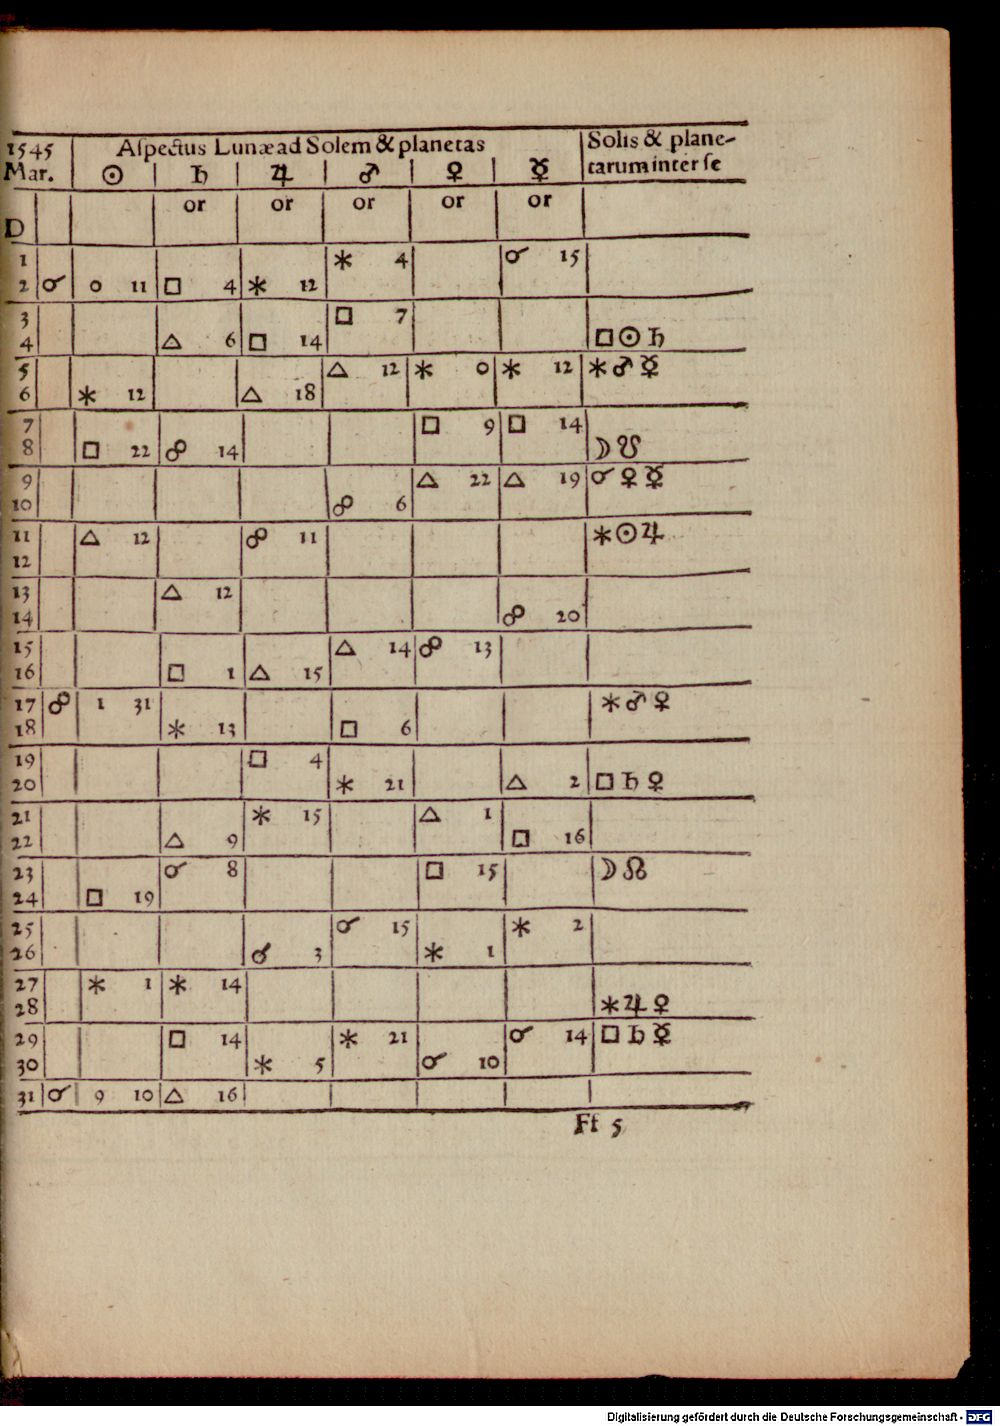 1545 Aſpectus Lunæ ad Solem & planetas Solis & plane-
Mar. ☉ ♄ ♃ ♂ ♀ ☿ tarum inter ſe
or or or or or
D
1 ⚹ 4 ☌ 15
2 ☌ 0 11 □ 4 ⚹ 12
3 □ 7
4 △ 6 □ 14 □ ☉ ♄
5 △ 12 ⚹ 0 ⚹ 12 ⚹ ♂ ☿
6 ⚹ 12 △ 18
7 □ 9 □ 14
8 □ 22 ☍ 14 ☽ ☋
9 △ 22 △ 19 ☌ ♀ ☿
10 ☍ 6
11 △ 12 ☍ 11 ⚹ ☉ ♃
12
13 △ 12
14 ☍ 20
15 △ 14 ☍ 13
16 □ 1 △ 15
17 ☍ 1 31 ⚹ ♂ ♀
18 ⚹ 13 □ 6
19 □ 4
20 ⚹ 21 △ 2 □ ♄ ♀
21 ⚹ 15 △ 1
22 △ 9 □ 16
23 ☌ 8 □ 15 ☽ ☊
24 □ 19
25 ☌ 15 ⚹ 2
26 ☌ 3 ⚹ 1
27 ⚹ 1 ⚹ 14
28 ⚹ ♃ ♀
29 □ 14 ⚹ 21 ☌ 14 □ ♄ ☿
30 ⚹ 5 ☌ 10
31 ☌ 9 10 △ 16
Ff 5
Digitalisierung gefördert durch die Deutsche Forschungsgemeinschaft - DFG